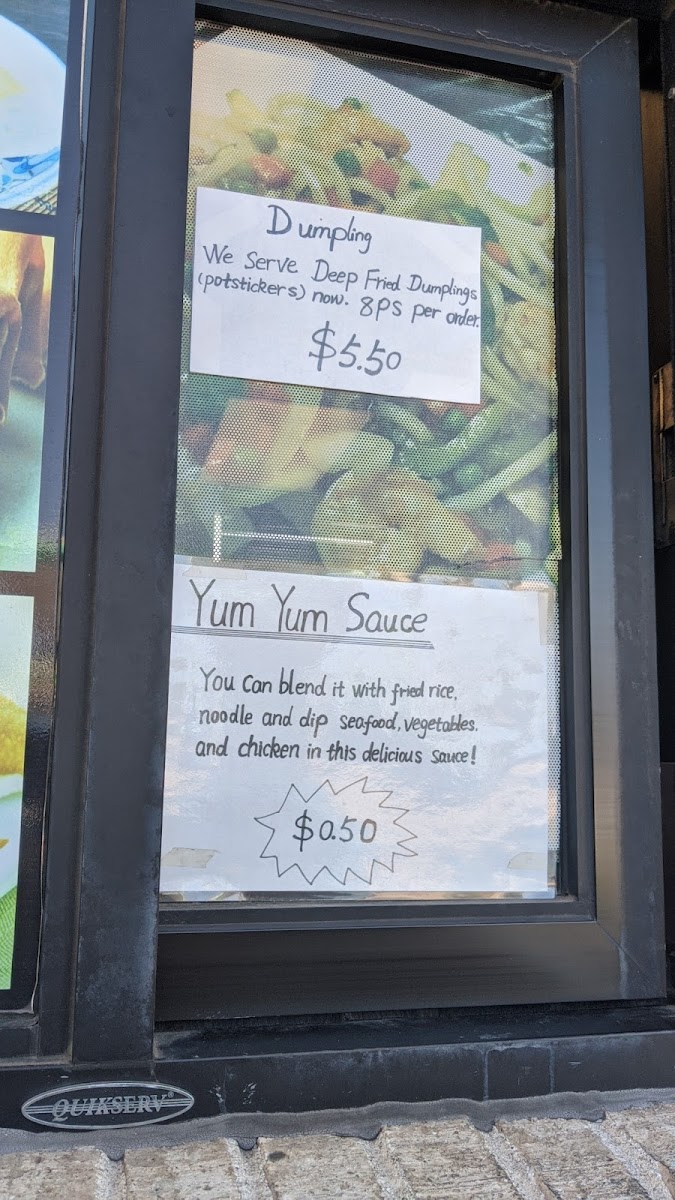 Dumpling
We Serve Deep Fried Dumplings
(potstickers) now. 8ps per order.
$5.50
Yum Yum Sauce
You can blend it with fried rice,
noodle and dip seafood, vegetables.
and chicken in this delicious sauce!
$0.50
QUIKSERV®